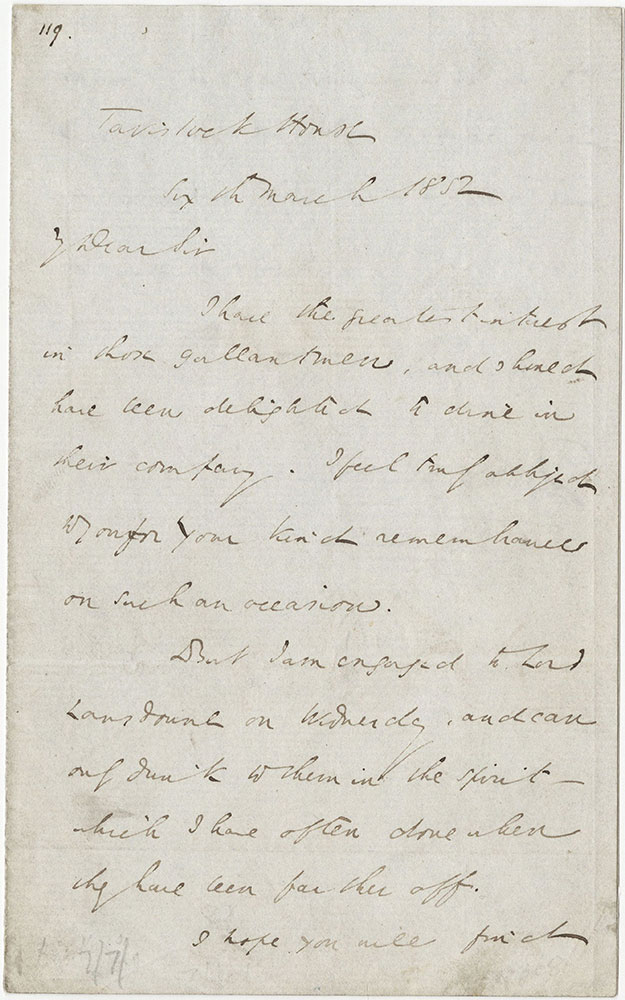 119.
Tavistock House
Sixth March 1852
My Dear Sir
I have the greatest interest
in those gallant men, and should
have been delighted to dine in
their company. I feel truly obliged
to you for your kind remembrance
on such an occasion.
But I am engaged to Lord
Lansdowne on Wednesday, and can
only drink to them in the spirit –
which I have often done when
they have been farther off.
I hope you will find
7/7/